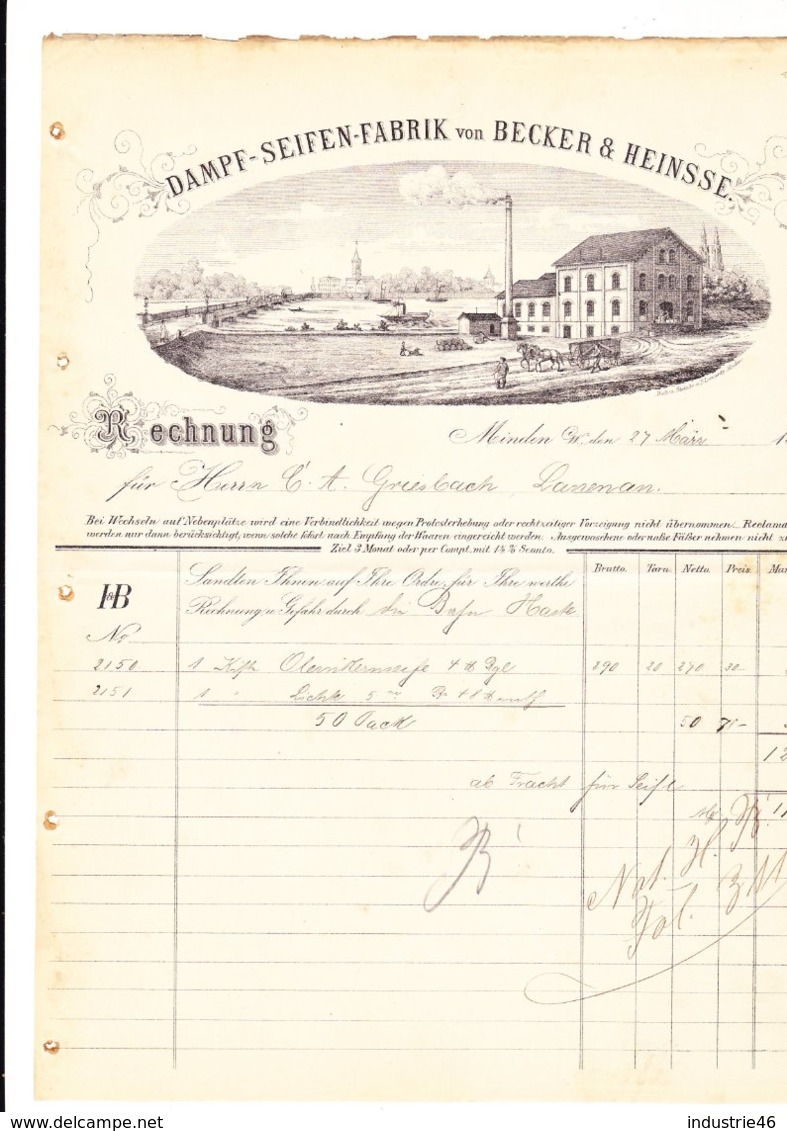 DAMPF-SEIFEN-FABRIK von BECKER & HEINSSE.
Rechnung
Minden /W, den 27 März 1
für Herrn C. A. Griesbach, Danenan.
Bei Wechseln auf Nebenplätze wird eine Verbindlichkeit wegen Protesterhebung oder rechtzeitiger Vorzeigung nicht übernommen. Reclama
werden nur dann berücksichtigt, wenn solche sofort nach Empfang der Waaren eingereicht werden. Ausgewaschene oder naße Fäßer nehmen nicht z
Ziel 3 Monat oder per Compt. mit 1½ % Sconto.
Brutto. Tara. Netto. Preis. Mar
Sandten Ihnen auf Ihre Ordre, für Ihre werthe
H&B Rechnung u. Gefahr durch die Bahn
No
2150 1 4 290 20 270 30
2151 1 " Lichte 5
50 Pack 50 70
12
ab Fracht für Seife
11
industrie46